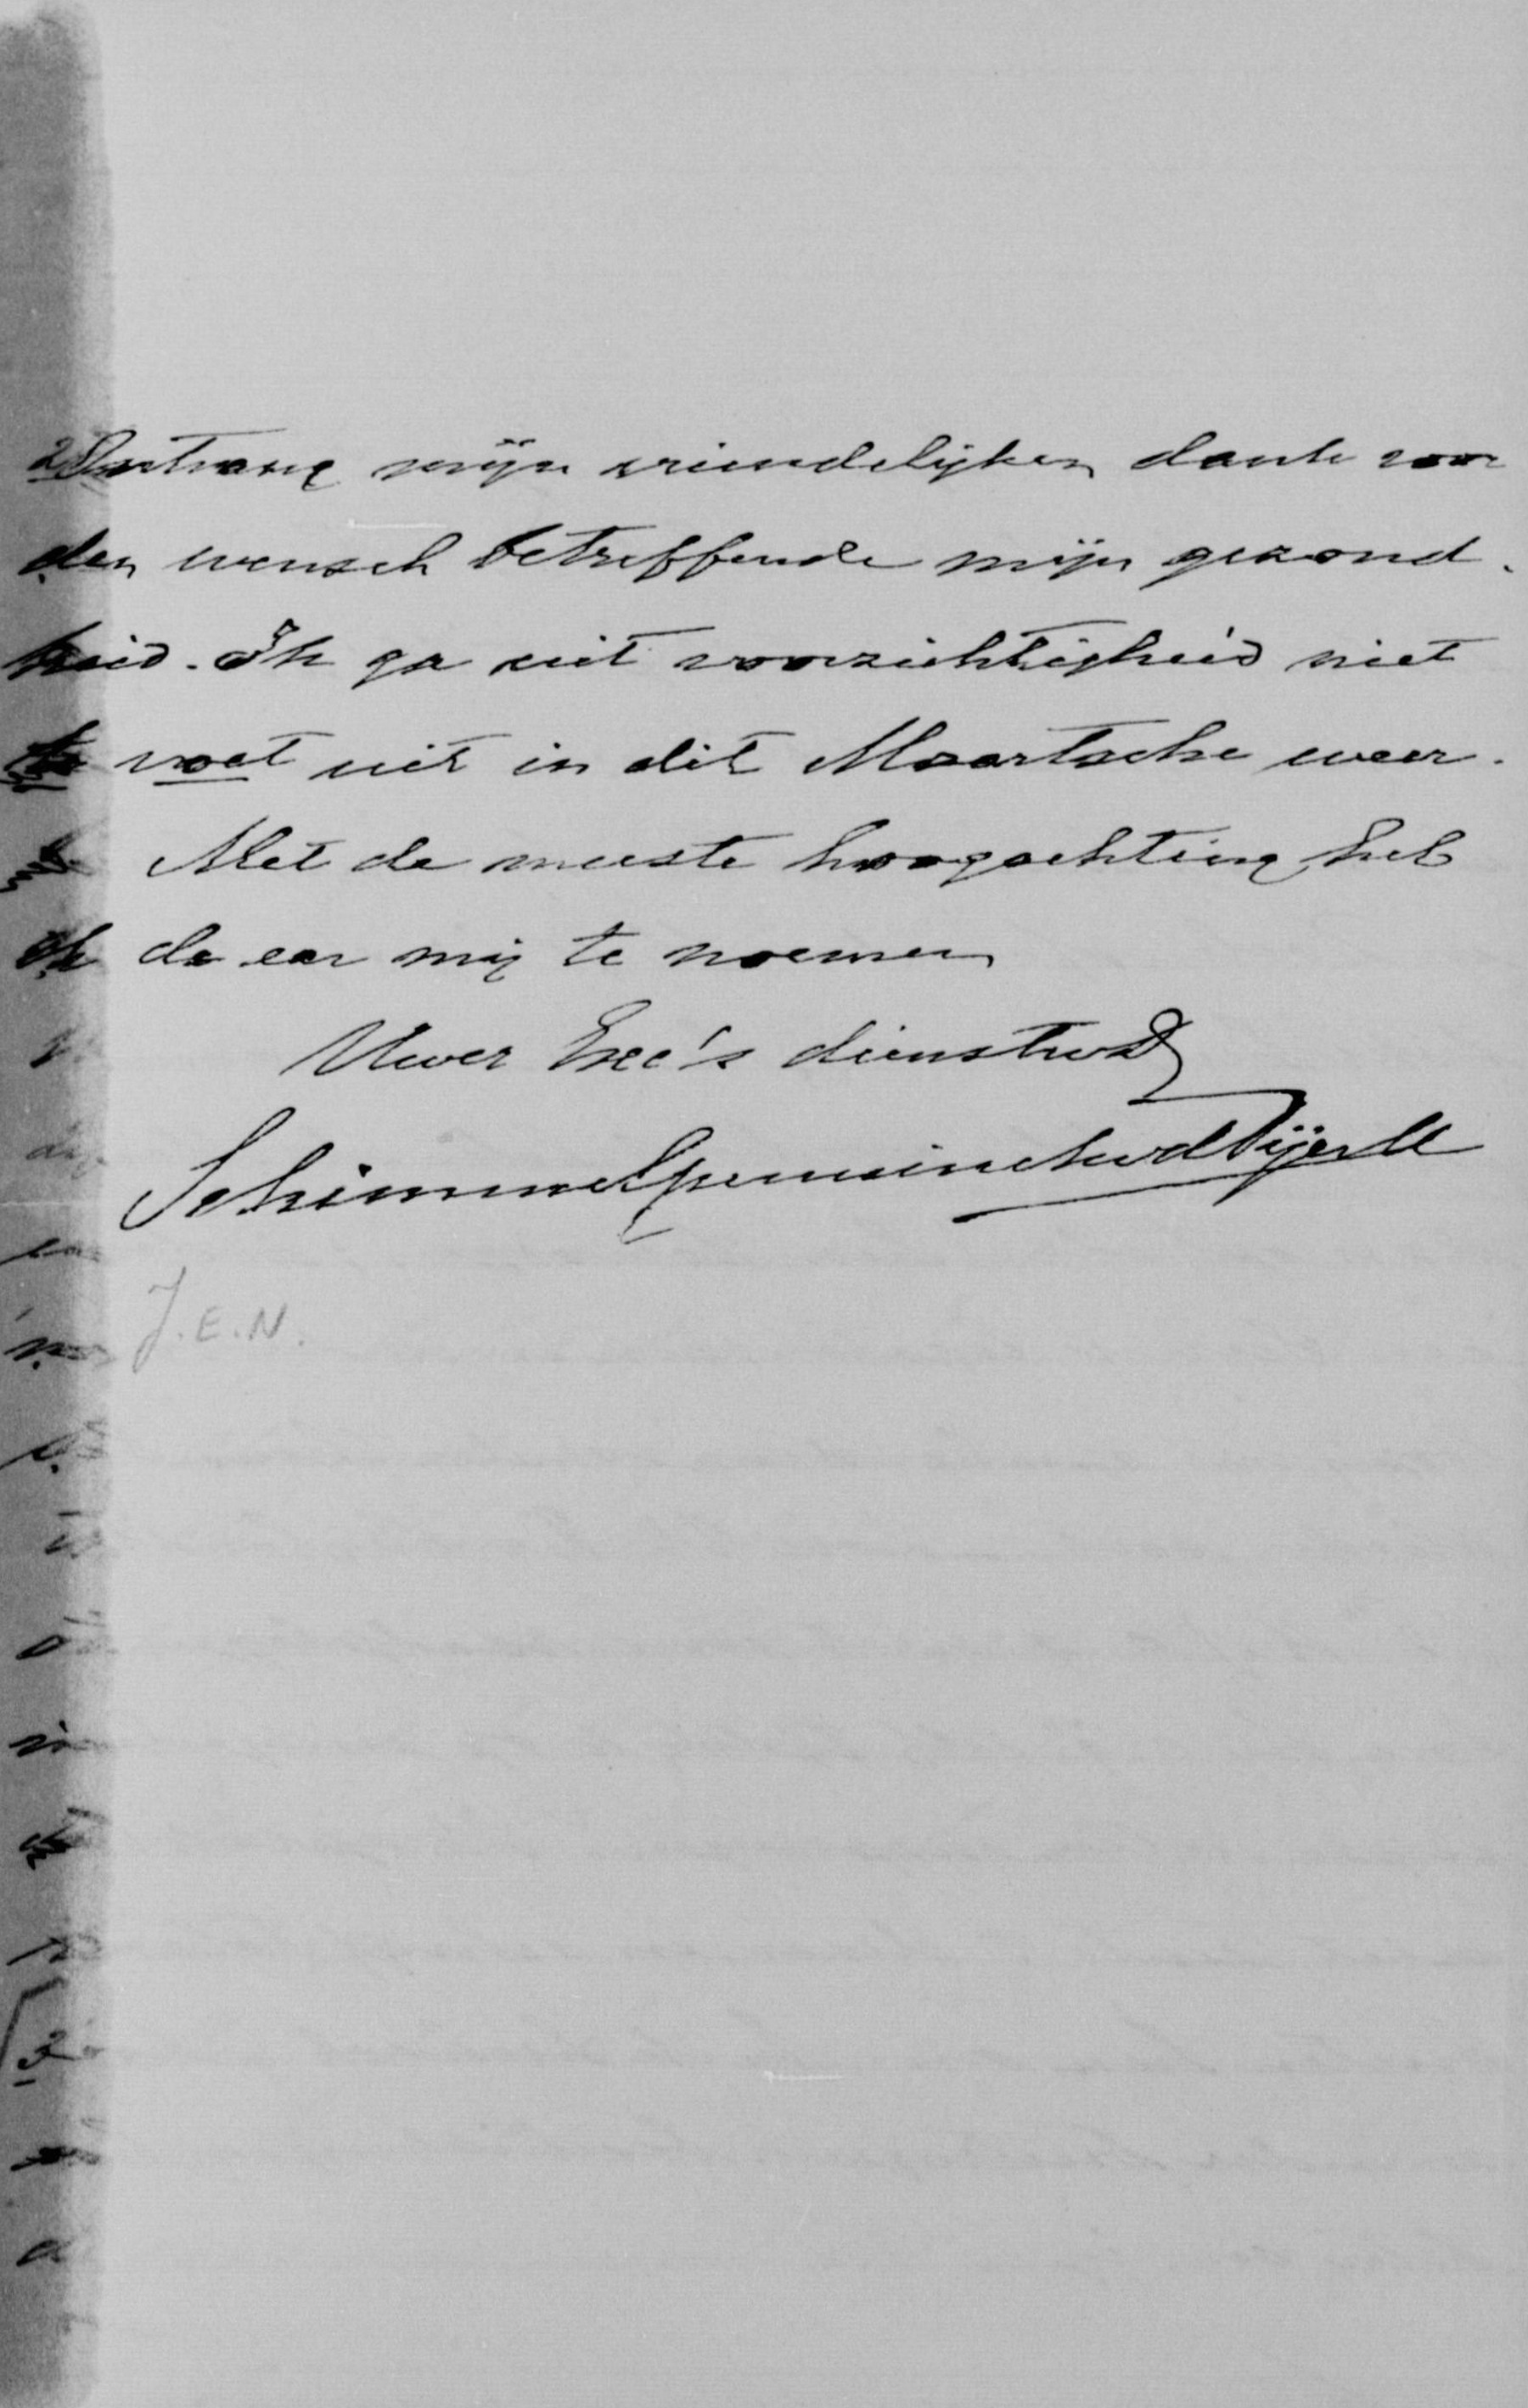 Ontvang mijn vriendelijken dank voor
den wensch betreffende mijn gezond-
heid. Ik ga uit voorzichtigheid niet
te voet uit in dit Maartsche weer.
Met de meeste hoogachting heb
ik de eer mij te noemen
Uwer Exc's dienstwd
Schimmelpenninckvd Nijenh
J.E.N.